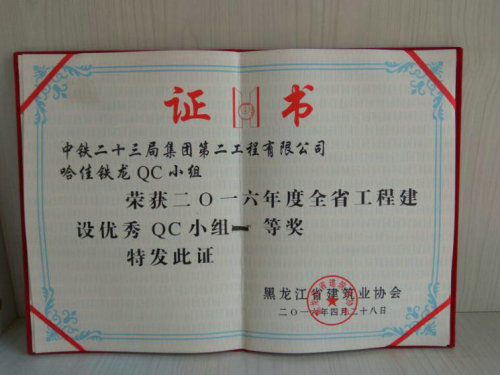 证书
中铁二十三局集团第二工程有限公司
哈佳铁龙QC小组
荣获二〇一六年度全省工程建
设优秀QC小组一等奖
特发此证
黑龙江省建筑业协会
二〇一六年四月二十八日